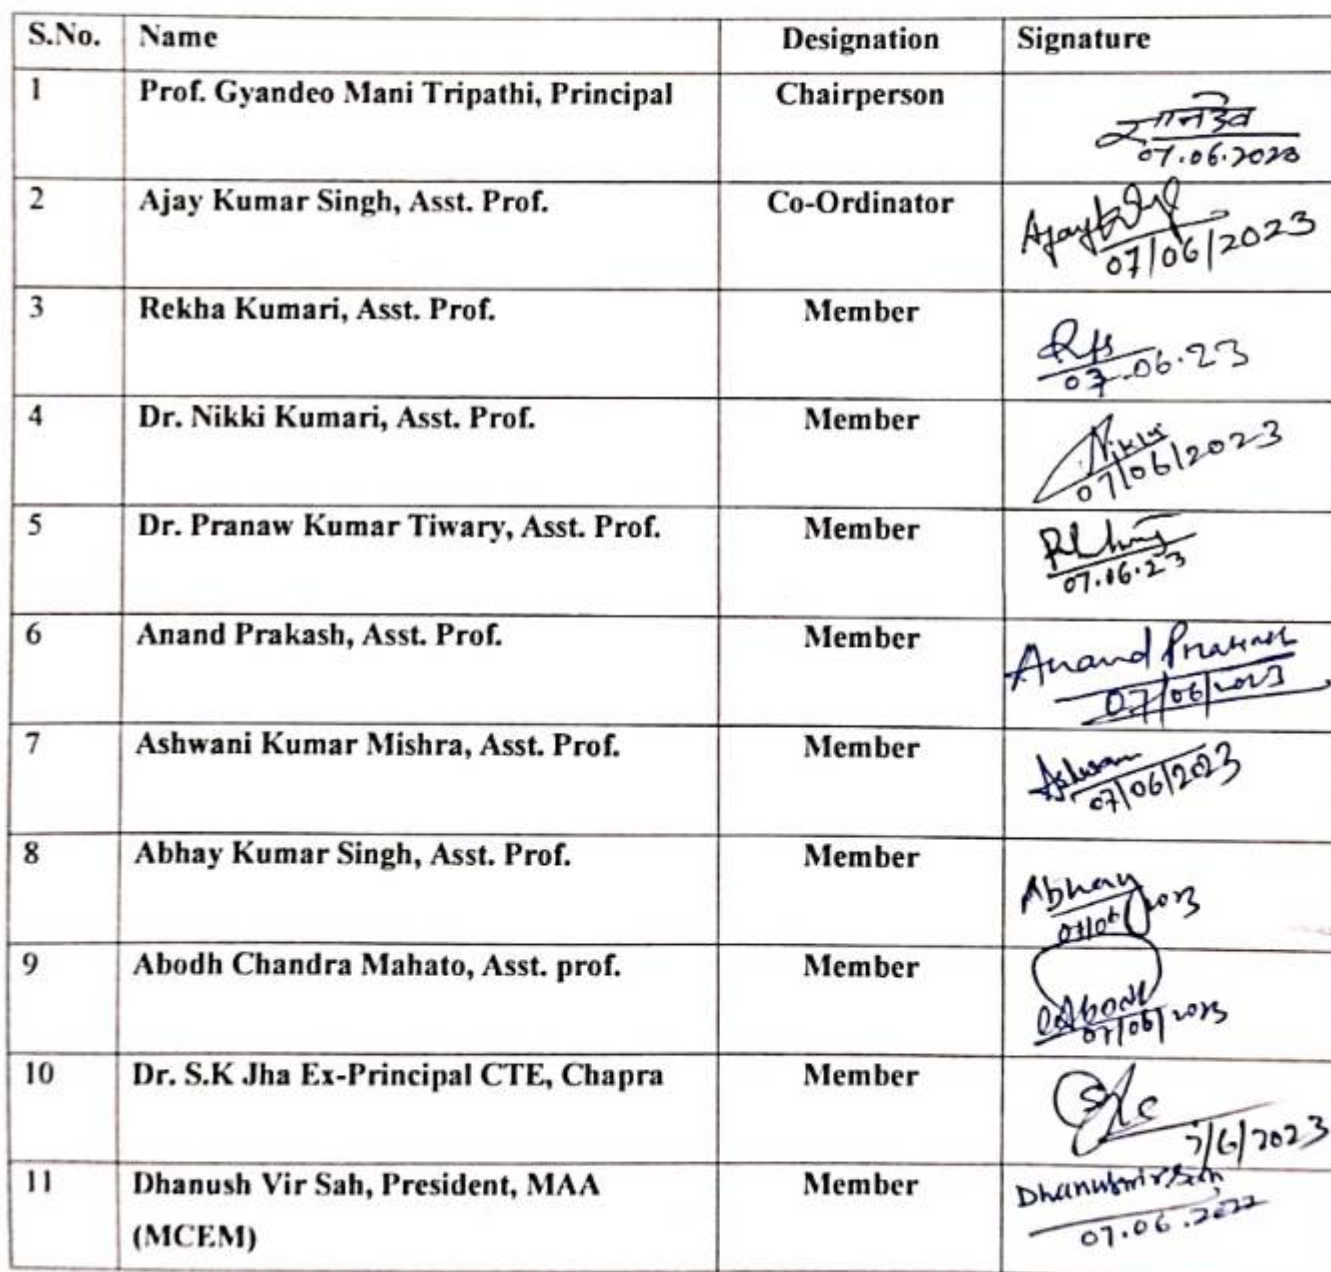 S.No. Name Designation Signature
1 Prof. Gyandeo Mani Tripathi, Principal Chairperson
ज्ञानदेव
07.06.2023
2 Ajay Kumar Singh, Asst. Prof. Co-Ordinator
Ajay
07/06/2023
3 Rekha Kumari, Asst. Prof. Member
07.06.23
4 Dr. Nikki Kumari, Asst. Prof. Member
Nikki
07/06/2023
5 Dr. Pranaw Kumar Tiwary, Asst. Prof. Member
07.06.23
6 Anand Prakash, Asst. Prof. Member
Anand Prakash
07/06/2023
7 Ashwani Kumar Mishra, Asst. Prof. Member
Ashwani
07/06/2023
8 Abhay Kumar Singh, Asst. Prof. Member
Abhay
07/06/2023
9 Abodh Chandra Mahato, Asst. prof. Member
Abodh
07/06/2023
10 Dr. S.K Jha Ex-Principal CTE, Chapra Member
7/6/2023
11 Dhanush Vir Sah, President, MAA Member
(MCEM)
Dhanushvir Sah
07.06.2022